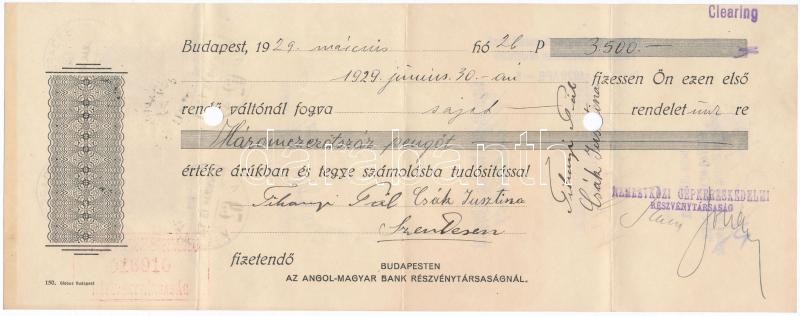 Clearing
Budapest, 1929. március hó 26 P 3.500.—
1929. június 30.-án fizessen Ön ezen első
rendű váltónál fogva saját rendelet ünk re
Háromezerötszáz pengőt
értéke árúkban és tegye számolásba tudósítással
Tihanyi Pál Csák Jusztina
Szentesen
fizetendő
BUDAPESTEN
AZ ANGOL-MAGYAR BANK RÉSZVÉNYTÁRSASÁGNÁL.
Tihanyi Pál
Csák Jusztina
NEMZETKÖZI GÉPKERESKEDELMI
RÉSZVÉNYTÁRSASÁG
318910
150. Globus Budapest
darabanth